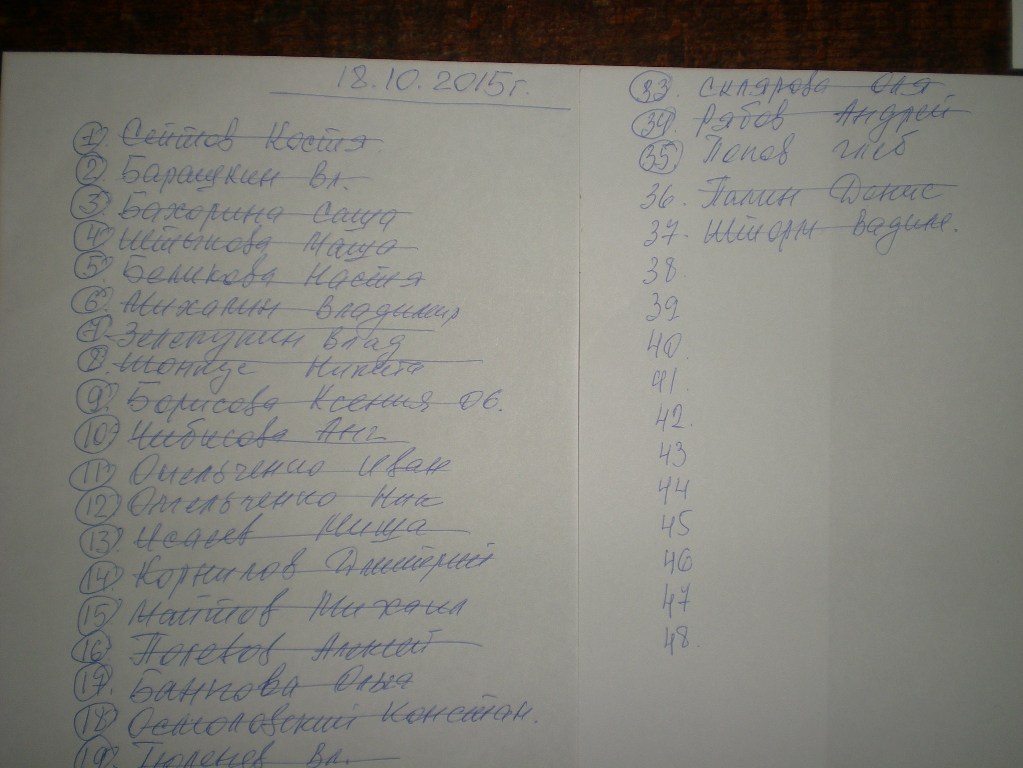 18.10.2015г.
1. Сеитов Костя
2. Баращкин Вл.
3. Бахорина Саша
4. Маша
5. Беликова Настя
6. Михалин Владимир
7. Зелепукин Влад
8. Никита
9. Борисова Ксения Об.
10. Чибисова Анг
11. Омельченко Иван
12. Омельченко Ник
13. Исаев Миша
14. Корнилов Дмитрий
15. Михаил
16. Полевов Алексей
17. Банкова Ольга
18. Осмоловский Констан.
19. Тюленев Вл.
33. Склярова Оля
34. Рябов Андрей
35. Попов Глеб
36. Папин Денис
37. Шторм Вадим.
38.
39
40.
41.
42.
43
44
45
46
47
48.